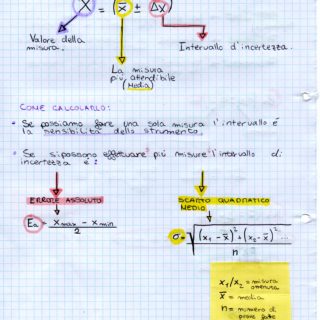 X = (x̅ ± Δx)
Valore della misura.
Intervallo d'incertezza.
La misura
più attendibile
(Media)
COME CALCOLARLO:
• Se possiamo fare una sola misura l'intervallo è
la sensibilità dello strumento.
• Se si possono effettuare più misure l'intervallo di
incertezza è:
ERRORE ASSOLUTO
SCARTO QUADRATICO
MEDIO
Ea = xmax - xmin / 2
σ = √((x₁ - x̅)² + (x₂ - x̅)² ... / n)
x₁/x₂ = misura
ottenuta
x̅ = media
n = numero di
prove fatte